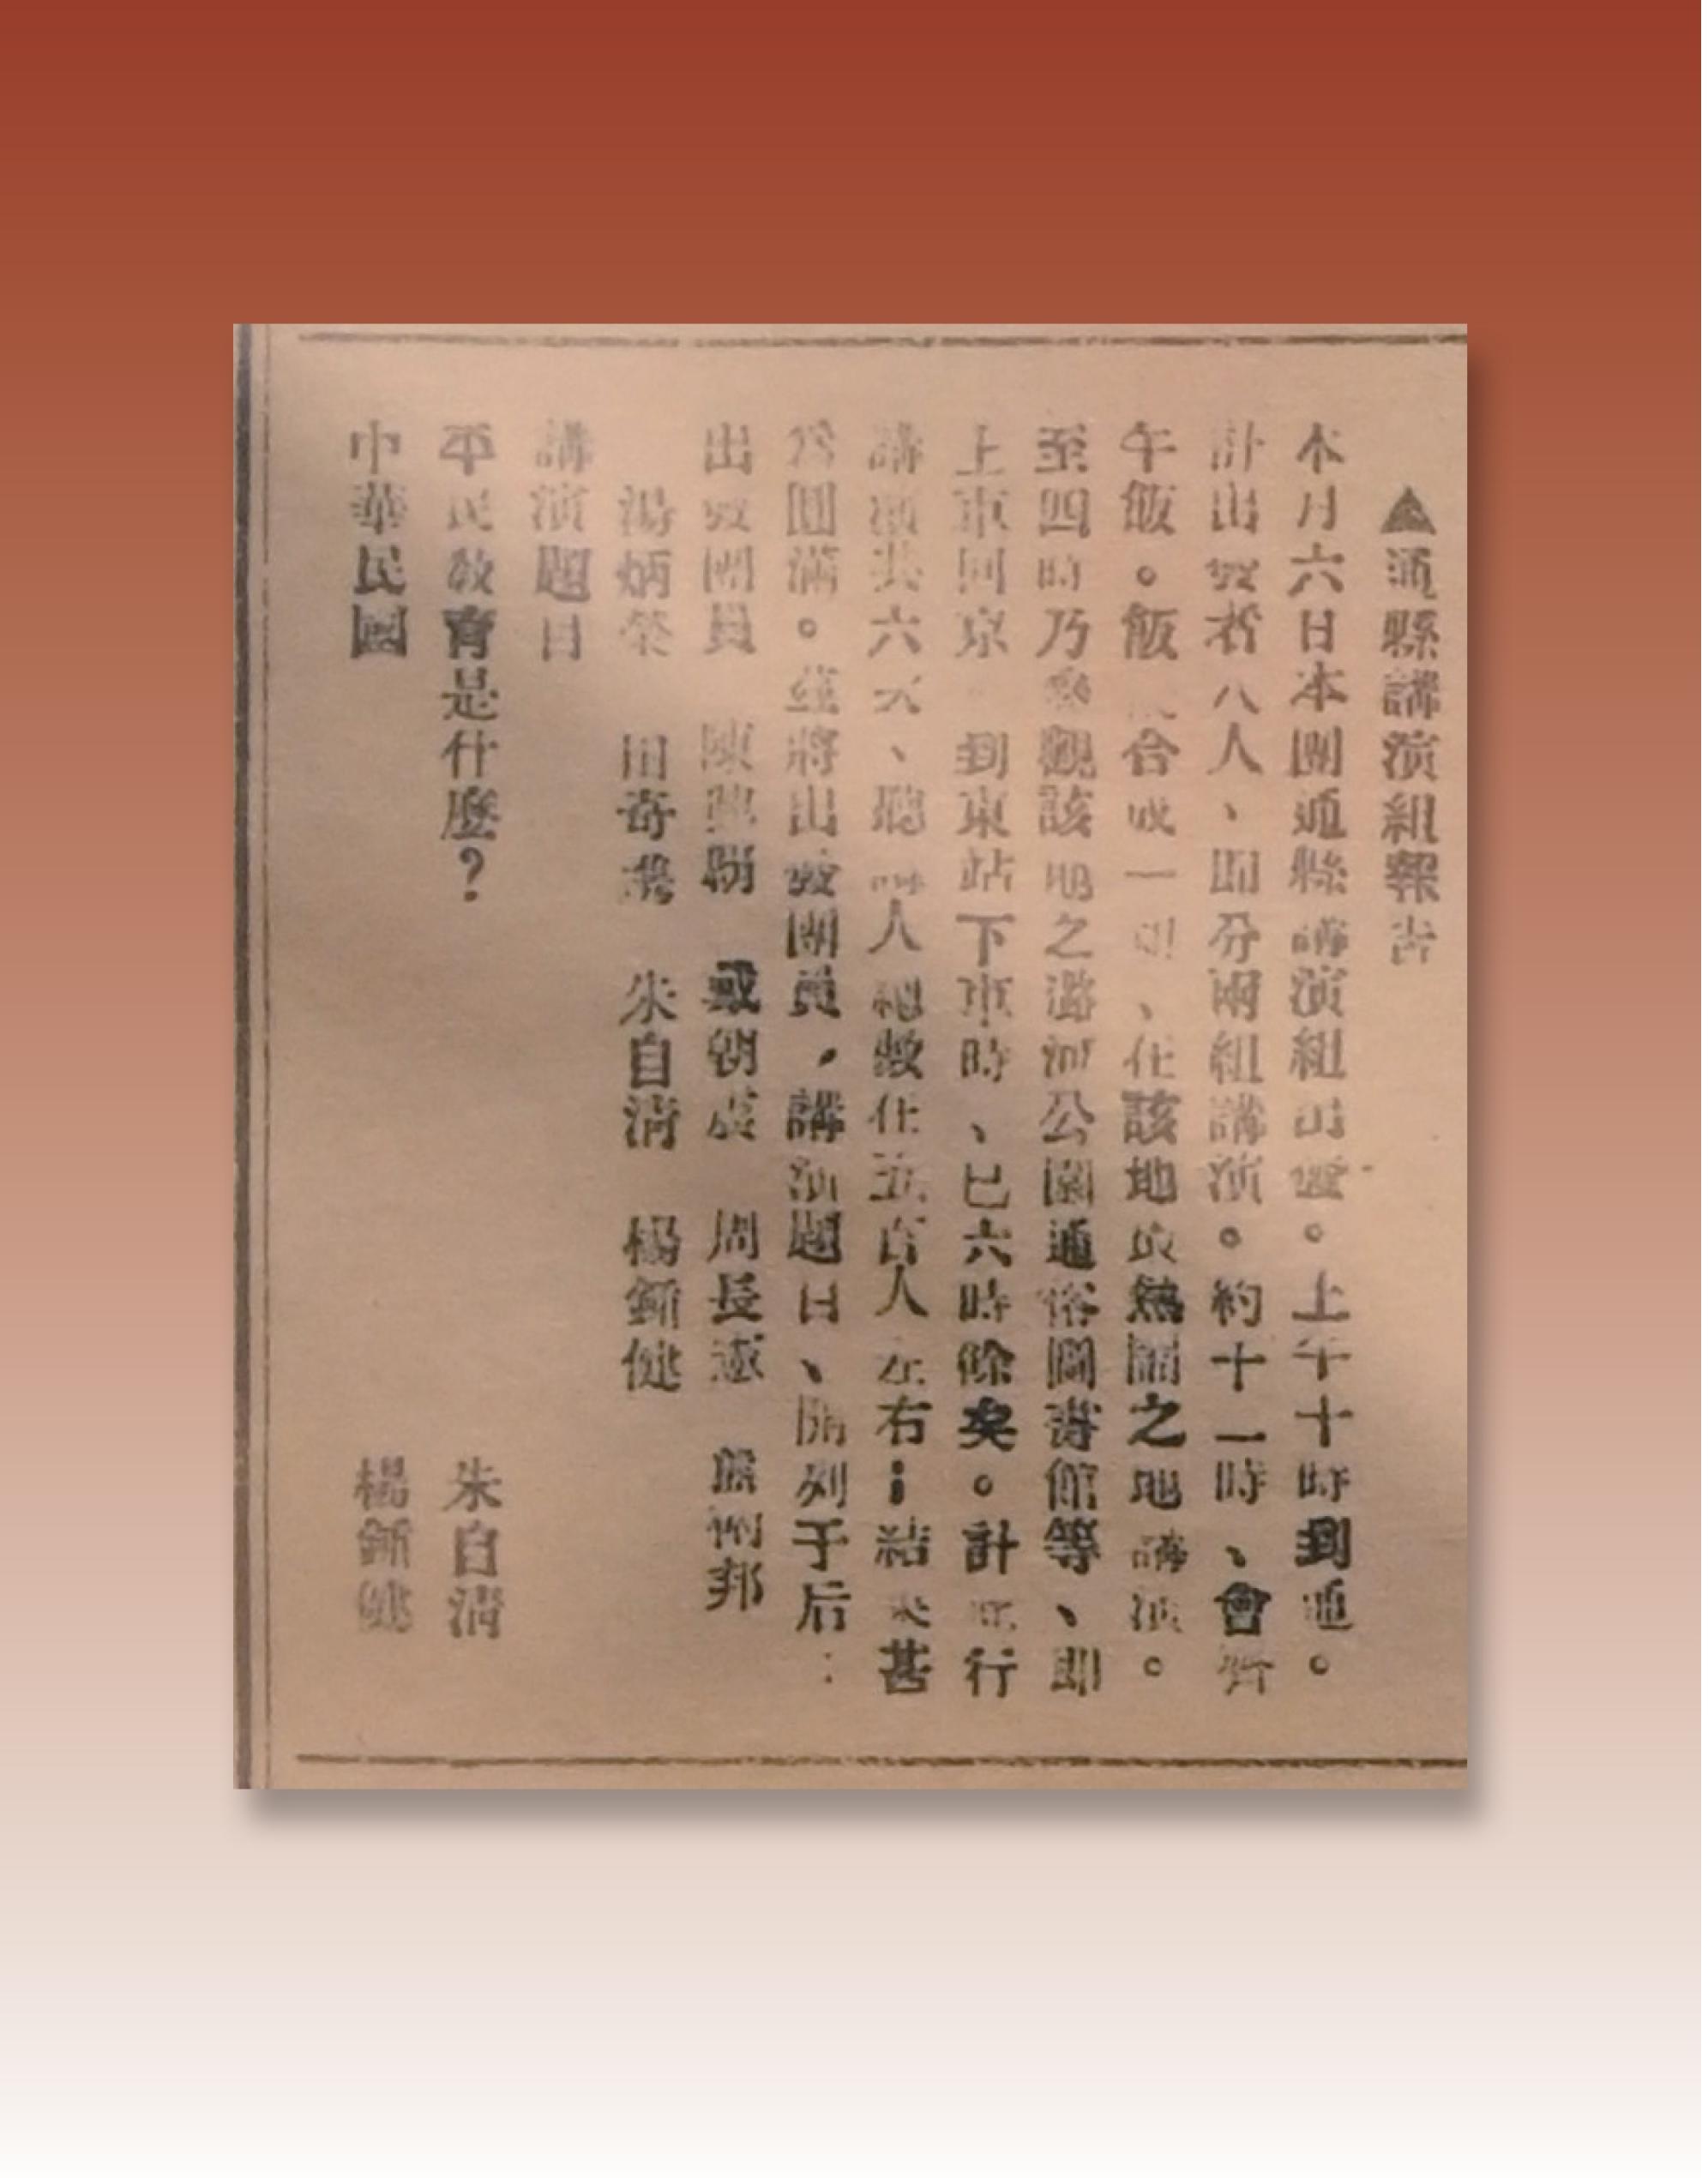 ▲通縣講演組報告
本月六日本團通縣講演組出發。上午十時到通。
計出發者八人、即分兩組講演。約十一時、會齊
午飯。飯後合成一組、在該地最熱鬧之地講演。
至四時乃參觀該地之潞河公園通俗圖書館等、即
上車回京 到東站下車時、已六時餘矣。計此行
講演共六次、聽講人總數在五百人左右；結果甚
爲圓滿。茲將出發團員，講演題目、開列于后：
出發團員 陳興霸 戴朝震 周長憲 熊 邦
湯炳榮 田奇 朱自清 楊鍾健
講演題目
平民教育是什麼？ 朱自清
中華民國 楊鍾健